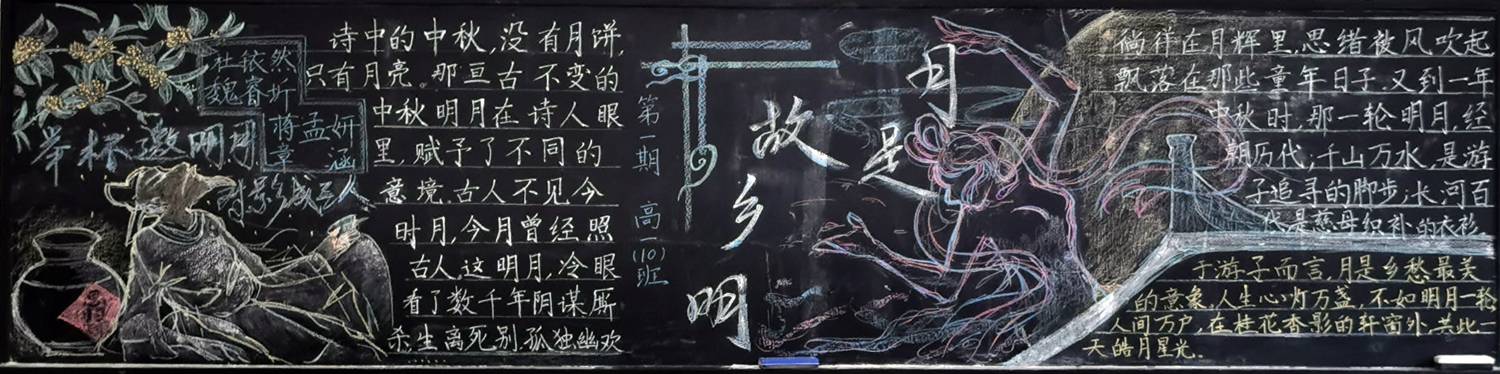 杜依然
魏睿圻
蒋孟妍
章涵
举杯邀明月
对影成三人
诗中的中秋,没有月饼,
只有月亮。那亘古不变的
中秋明月在诗人眼
里,赋予了不同的
意境.古人不见今
时月,今月曾经照
古人.这明月,冷眼
看了数千年阴谋厮
杀,生离死别.孤独幽欢
第一期 高一(10)班
月是
故乡明
徜徉在月辉里,思绪被风吹起
飘落在那些童年日子.又到一年
中秋时,那一轮明月,经
朝历代;千山万水,是游
子追寻的脚步;冰河百
代是慈母织补的衣衫.
于游子而言,月是乡愁最美
的意象.人生心灯万盏,不如明月一轮
人间万户,在桂花香影的轩窗外,共此一
天皓月星光.